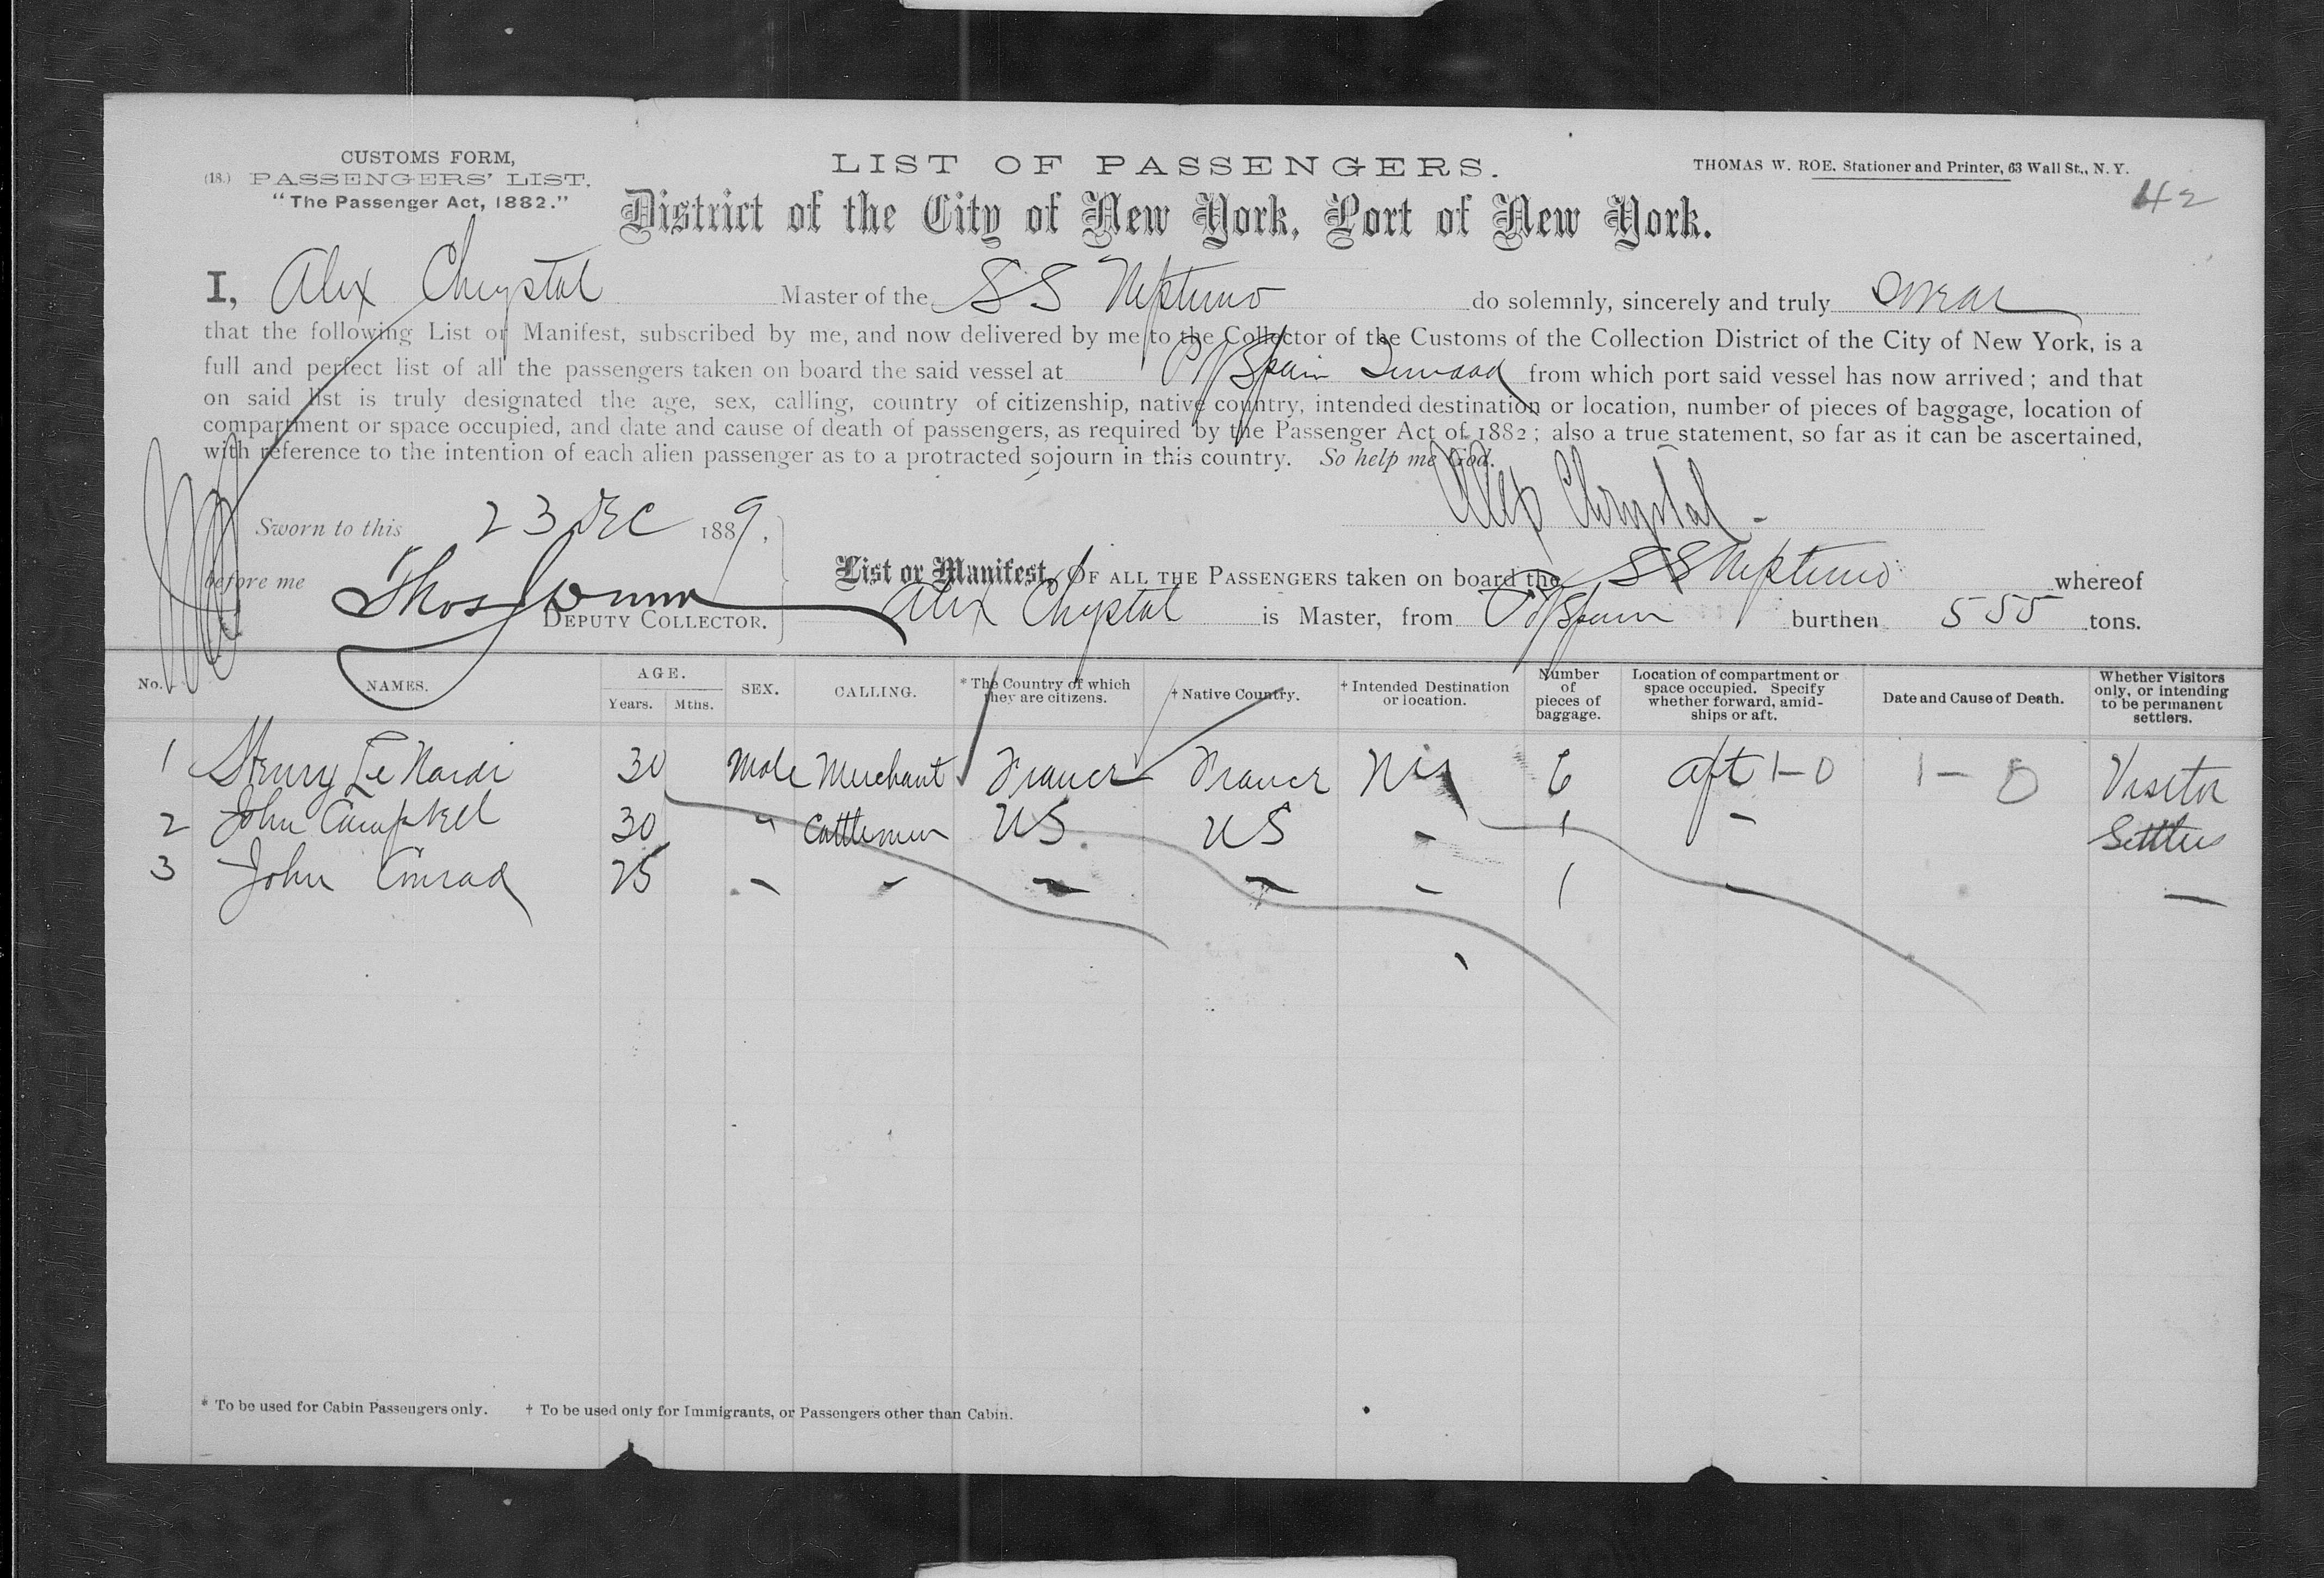 CUSTOMS FORM,
(18.) PASSENGERS' LIST.
"The Passenger Act, 1882."
LIST OF PASSENGERS.
THOMAS W. ROE, Stationer and Printer, 63 Wall St., N. Y.
42
District of the City of New York, Port of New York.
I, Alex Chrystal Master of the SS Neptuno do solemnly, sincerely and truly swear
that the following List or Manifest, subscribed by me, and now delivered by me to the Collector of the Customs of the Collection District of the City of New York, is a
full and perfect list of all the passengers taken on board the said vessel at P of Spain from which port said vessel has now arrived; and that
on said list is truly designated the age, sex, calling, country of citizenship, native country, intended destination or location, number of pieces of baggage, location of
compartment or space occupied, and date and cause of death of passengers, as required by the Passenger Act of 1882; also a true statement, so far as it can be ascertained,
with reference to the intention of each alien passenger as to a protracted sojourn in this country. So help me God.
Alex Chrystal
Sworn to this 23 Dec 1889,
before me Thos Dunn
DEPUTY COLLECTOR.
List or Manifest, OF ALL THE PASSENGERS taken on board the SS Neptuno whereof
Alex Chrystal is Master, from P of Spain burthen 555 tons.
No. NAMES. AGE. Years. Mths. SEX. CALLING. * The Country of which they are citizens. † Native Country. † Intended Destination or location. Number of pieces of baggage. Location of compartment or space occupied. Specify whether forward, amidships or aft. Date and Cause of Death. Whether Visitors only, or intending to be permanent settlers.
1 Henry Le 30 Male Merchant France France 6 aft 1-0 1-0 Visitor
2 John Campbell 30 " Cattleman US US - 1 - Settler
3 John Conrad 25 - - - - - 1 - -
* To be used for Cabin Passengers only. † To be used only for Immigrants, or Passengers other than Cabin.